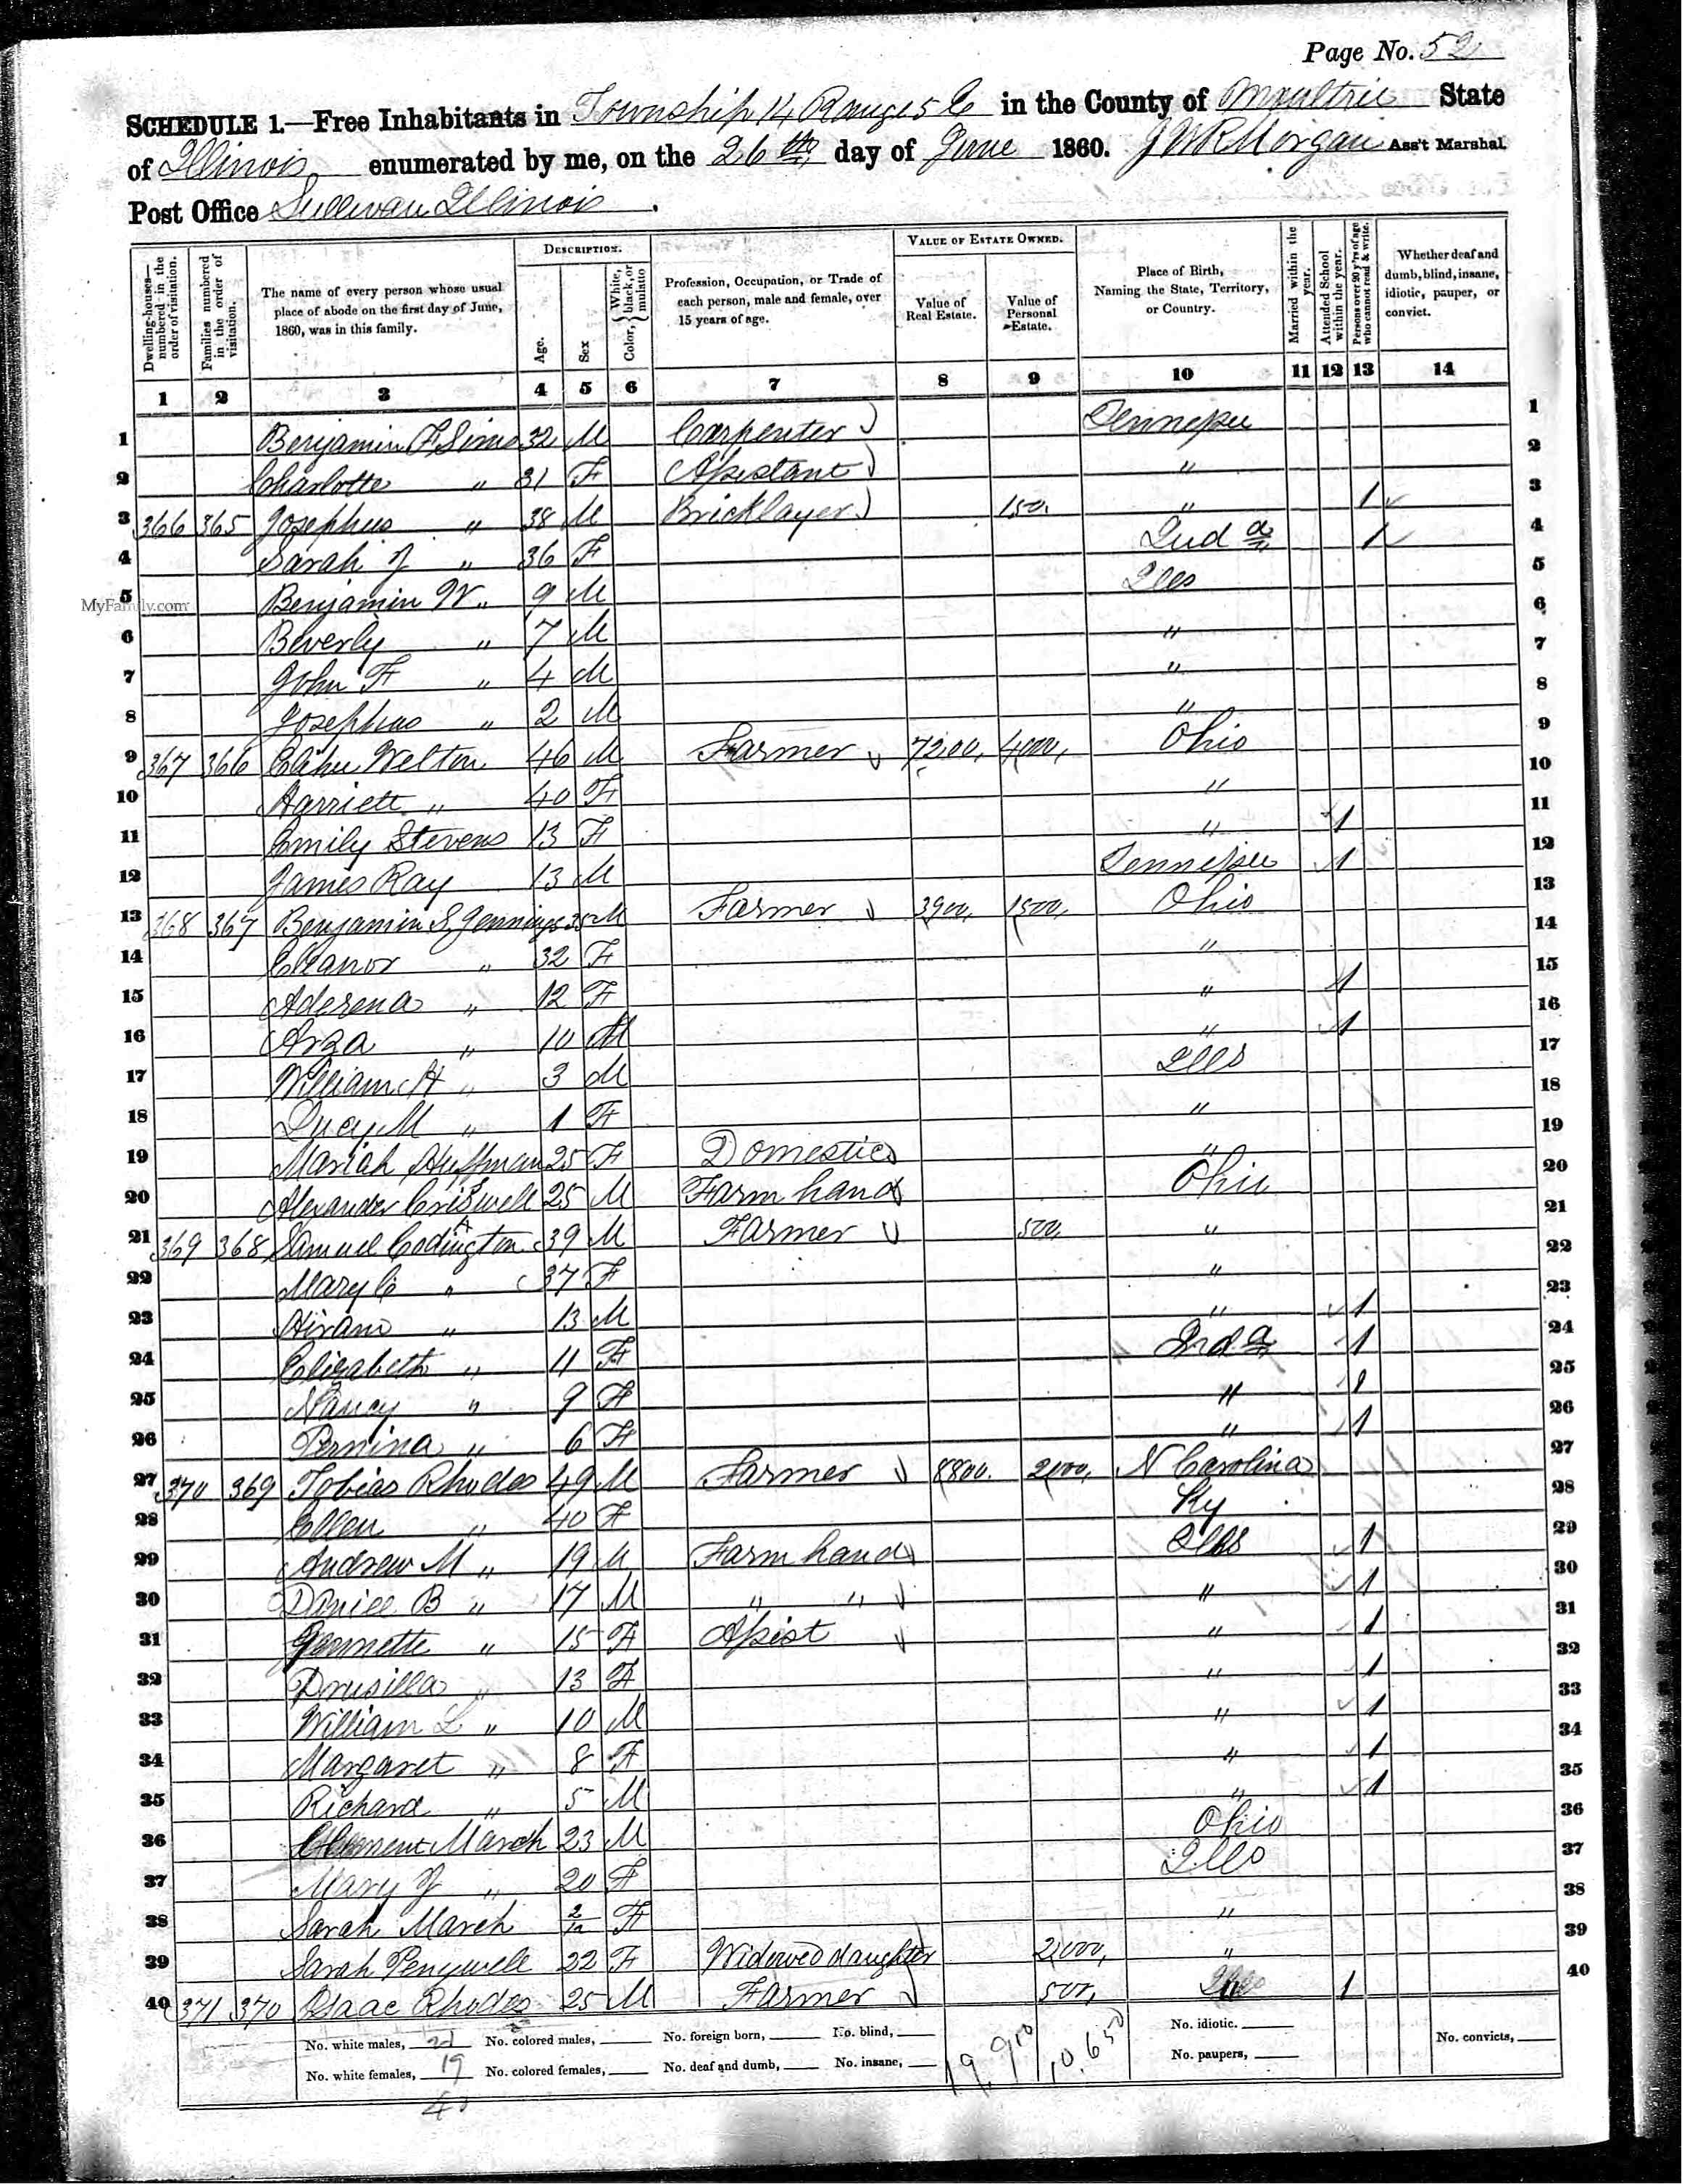 Page No. 52
SCHEDULE 1.—Free Inhabitants in Township 14 Range 5 E in the County of Moultrie State
of Illinois enumerated by me, on the 26th day of June 1860. J W R Morgan Ass't Marshal
Post Office Sullivan Illinois.
DESCRIPTION. VALUE OF ESTATE OWNED.
Dwelling-houses—numbered in the order of visitation. Families numbered in the order of visitation. The name of every person whose usual place of abode on the first day of June, 1860, was in this family. Age. Sex Color, {White, black, or mulatto Profession, Occupation, or Trade of each person, male and female, over 15 years of age. Value of Real Estate. Value of Personal Estate. Place of Birth, Naming the State, Territory, or Country. Married within the year. Attended School within the year. Persons over 20 y'rs of age who cannot read & write. Whether deaf and dumb, blind, insane, idiotic, pauper, or convict.
1 2 3 4 5 6 7 8 9 10 11 12 13 14
1 Benjamin F Sims 32 M Carpenter Tennessee 1
2 Charlotte " 31 F Assistant " 2
3 366 365 Josephus " 38 M Bricklayer 150 " 1 3
4 Sarah J " 36 F Inda 1 4
MyFamily.com
5 Benjamin W " 9 M Ills 5
6 Beverly " 7 M " 6
7 John F " 4 M " 7
8 Josephus " 2 M " 8
9 367 366 Elihu Welton 46 M Farmer 7200 4000 Ohio 9
10 Harriett " 40 F " 10
11 Emily Stevens 13 F " 1 11
12 James Ray 13 M Tennessee 1 12
13 368 367 Benjamin S Jennings 35 M Farmer 3900 1500 Ohio 13
14 Eleanor " 32 F " 14
15 Aderena " 12 F " 1 15
16 Arza " 10 M " 1 16
17 William H " 3 M Ills 17
18 Lucy M " 1 F " 18
19 Mariah Huffman 25 F Domestic " 19
20 Alexander Criswell 25 M Farm hand Ohio 20
21 369 368 Samuel Codington 39 M Farmer 500 " 21
22 Mary C " 37 F " 22
23 Hiram " 13 M " 1 23
24 Elizabeth " 11 F Inda 1 24
25 Nancy " 9 F " 1 25
26 Pernina " 6 F " 1 26
27 370 369 Tobias Rhodes 49 M Farmer 8800 2000 N Carolina 27
28 Ellen " 40 F Ky 28
29 Andrew M " 19 M Farm hand Ills 1 29
30 Daniel B " 17 M " " " 1 30
31 Jennette " 15 F Assist " 1 31
32 Drusilla " 13 F " 1 32
33 William L " 10 M " 1 33
34 Margaret " 8 F " 1 34
35 Richard " 5 M " 1 35
36 Clement March 23 M Ohio 36
37 Mary J " 20 F Ills 37
38 Sarah March 2/12 F " 38
39 Sarah Penywell 22 F Widowed daughter 2,000 " 39
40 371 370 Isaac Rhodes 25 M Farmer 500 Ills 1 40
No. white males, 21 No. colored males, No. foreign born, No. blind, 19,910 10,650 No. idiotic. No. convicts,
No. white females, 19 No. colored females, No. deaf and dumb, No. insane, No. paupers,
40